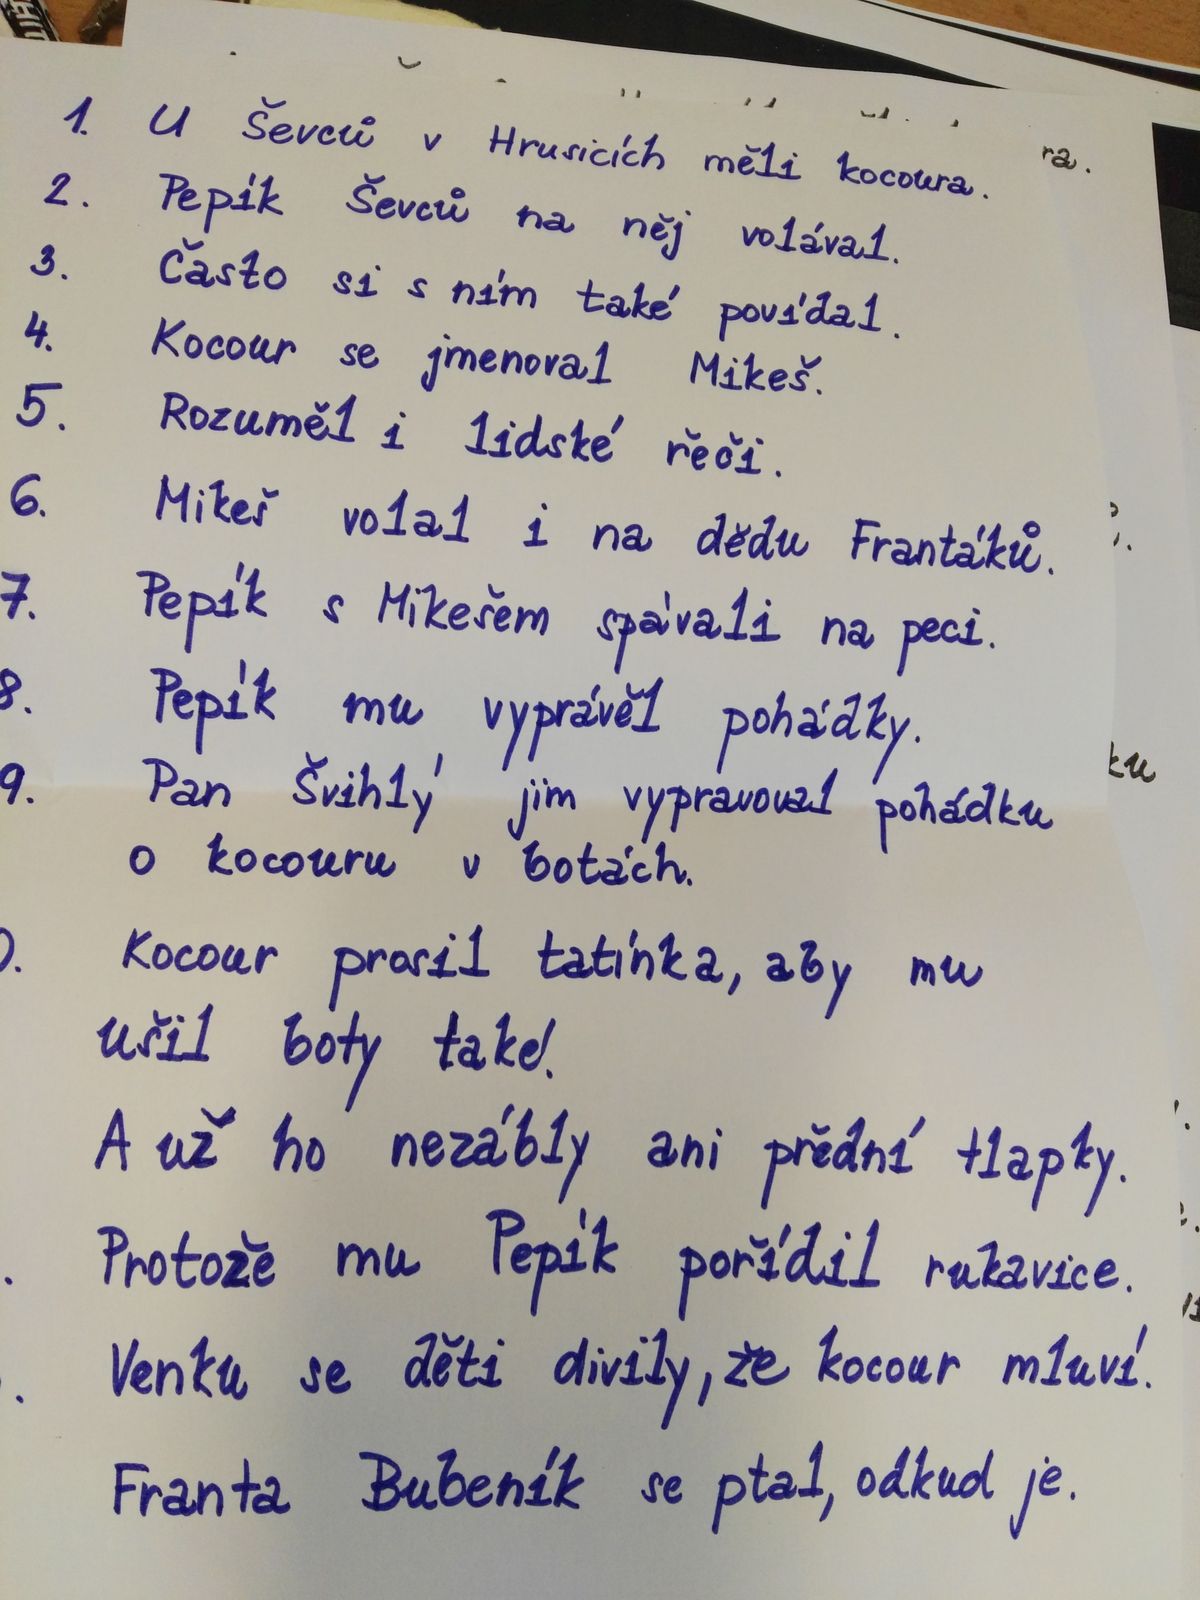 1. U Ševců v Hrusicích měli kocoura.
ra.
2. Pepík Ševců na něj volával.
3. Často si s ním také povídal.
4. Kocour se jmenoval Mikeš.
5. Rozuměl i lidské řeči.
6. Mikeš volal i na dědu Frantáků.
7. Pepík s Mikešem spávali na peci.
8. Pepík mu vyprávěl pohádky.
ku
9. Pan Švihlý jim vypravoval pohádku
o kocouru v botách.
0. Kocour prosil tatínka, aby mu
ušil boty také.
A už ho nezábly ani přědní tlapky.
. Protože mu Pepík pořídil rukavice.
. Venku se děti divily, že kocour mluví.
Franta Bubeník se ptal, odkud je.